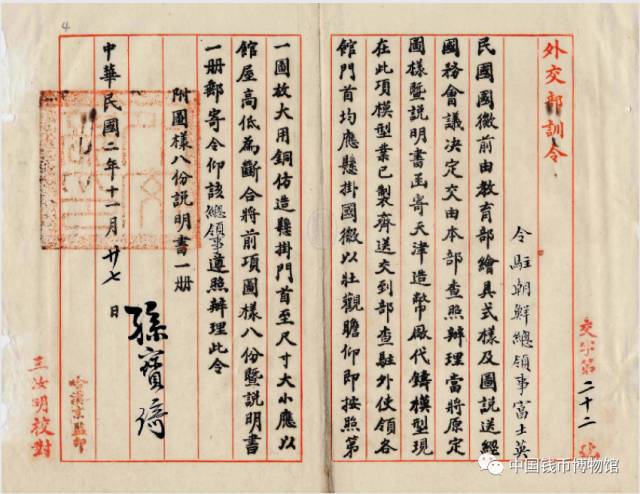 外交部訓令
令駐朝鮮總領事富士英
交字第二十二號
民國國徽前由教育部繪具式樣及圖說送經
國務會議決定交由本部查照辦理當將原定
圖樣暨說明書函寄天津造幣廠代鑄模型現
在此項模型業已製齊送交到部查駐外使領各
館門首均應懸掛國徽以壯觀瞻仰即按照第
一圖放大用銅仿造懸掛門首至尺寸大小應以
館屋高低為斷合將前項圖樣八份暨說明書
一册郵寄令仰該總領事遵照辦理此令
附圖樣八份說明書一册
中華民國二年十一月廿七日
孫寶琦
監印
王汝明校對
4
中国钱币博物馆